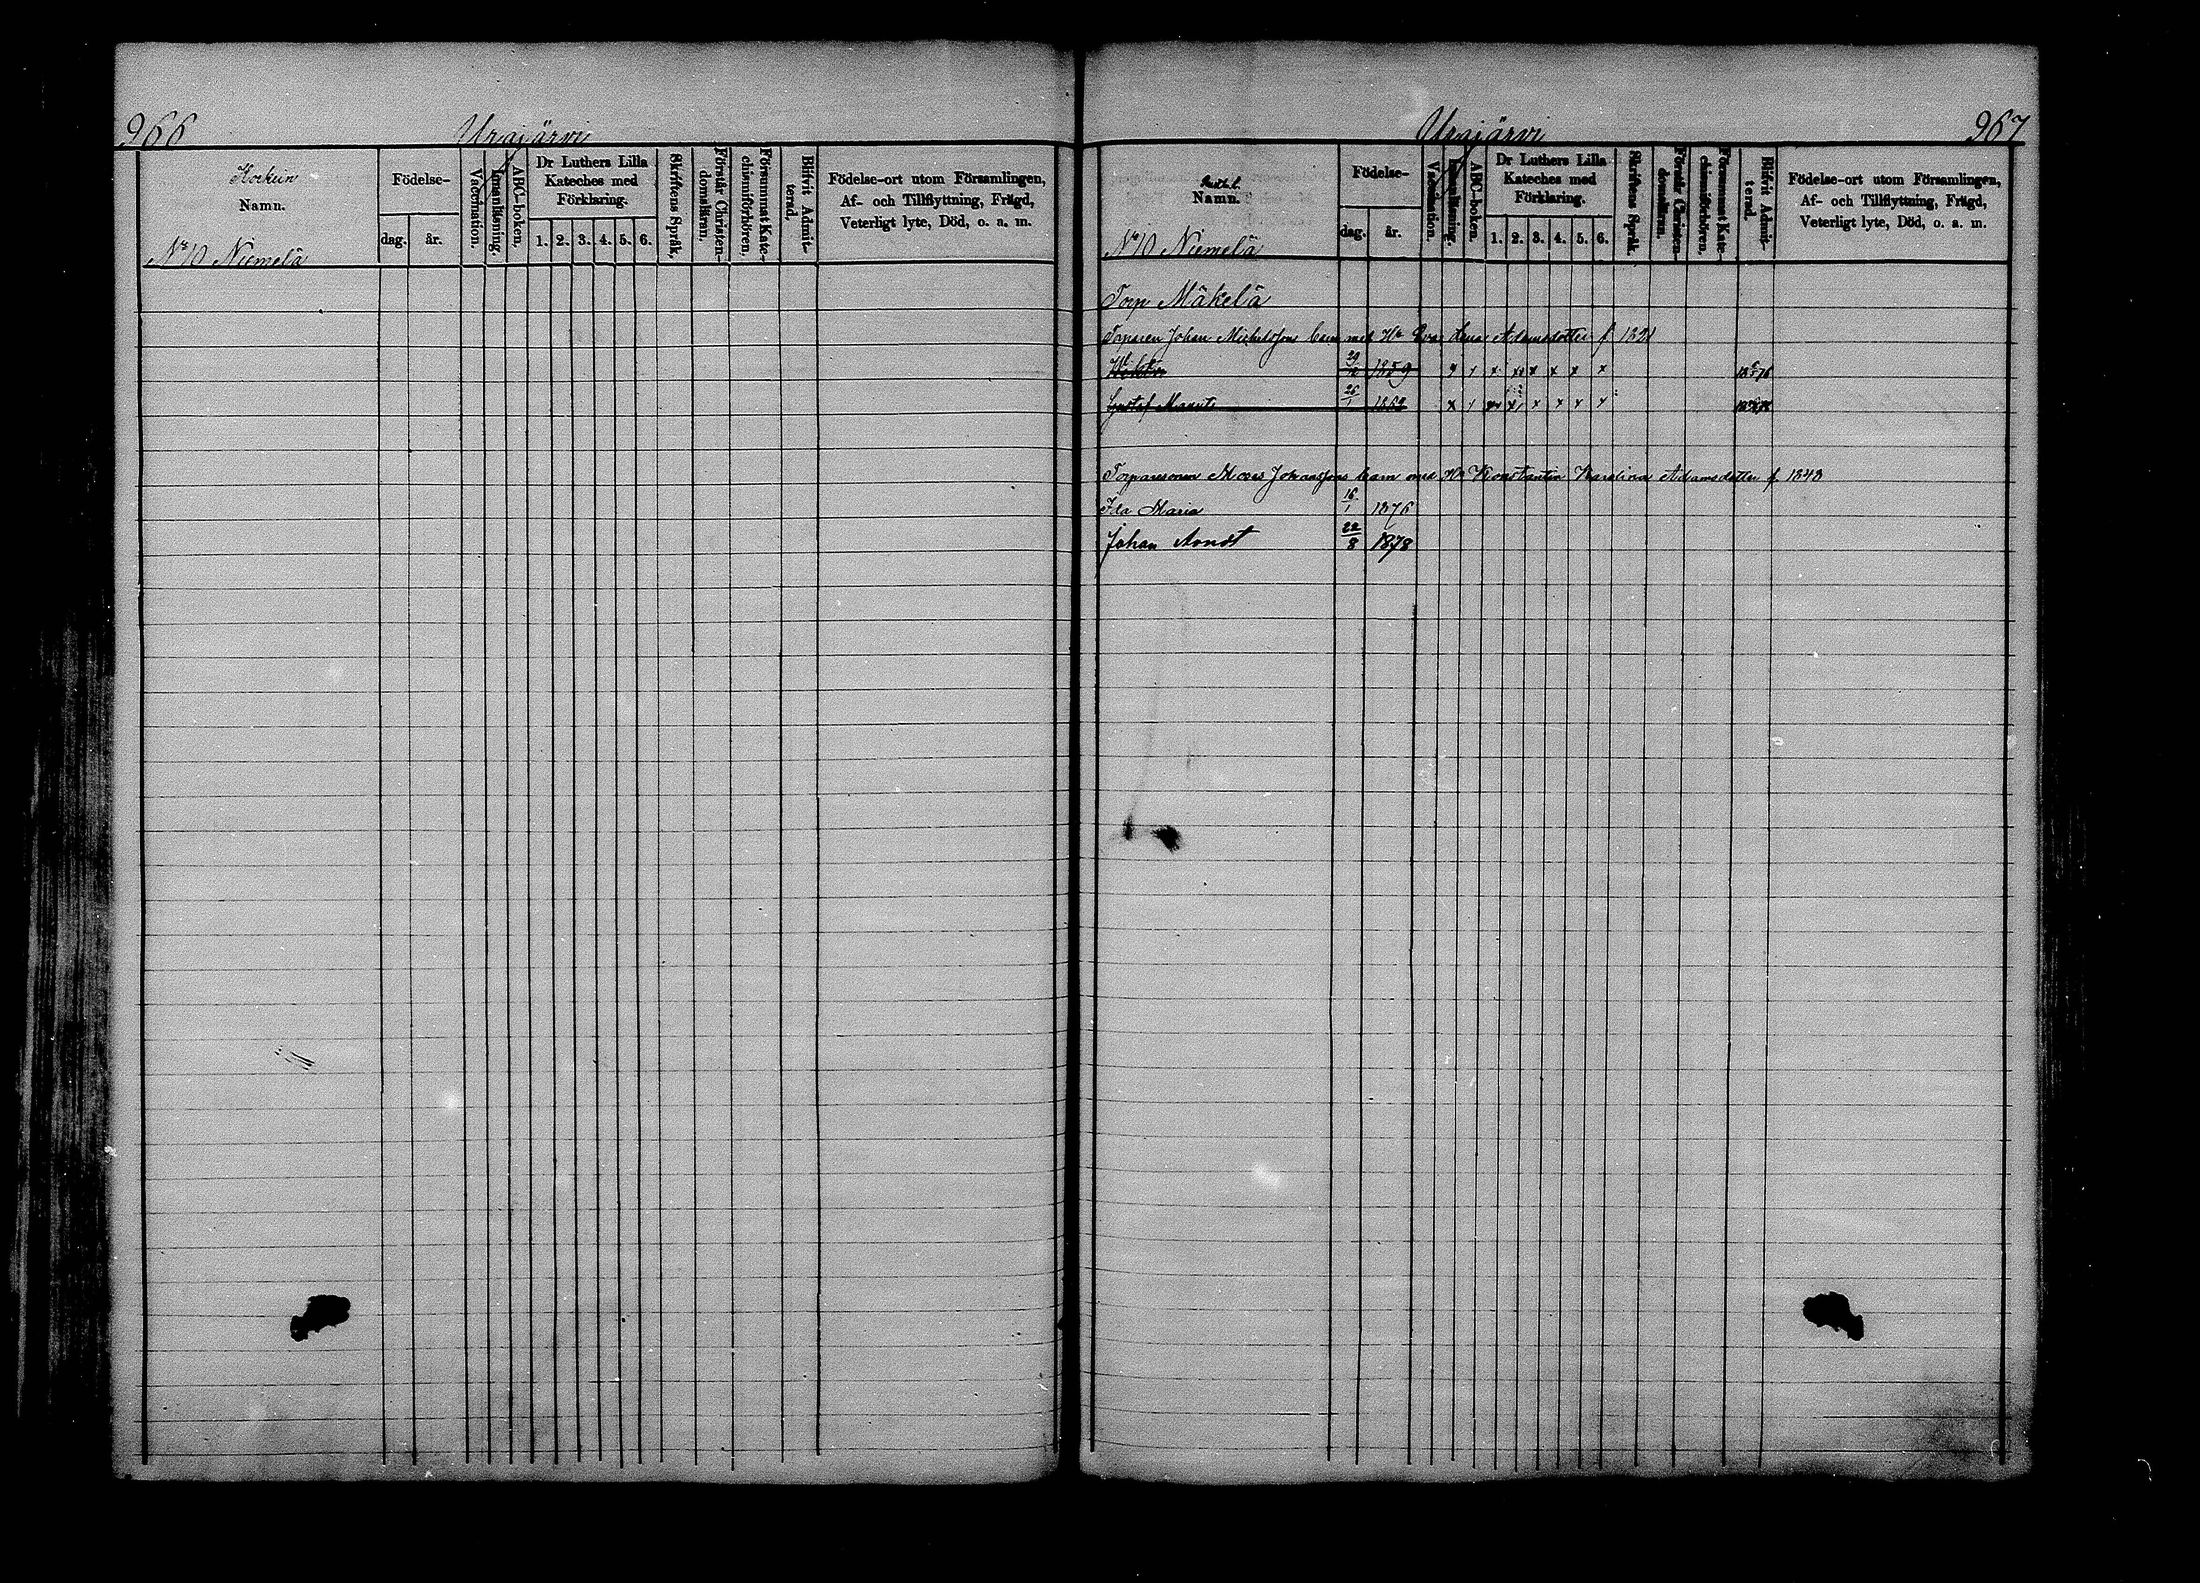 966 Urajärvi
Korkein
Namn.
Födelse-
dag. år.
Vaccination.
Innanläsning.
ABC-boken.
Dr Luthers Lilla
Kateches med
Förklaring.
1. 2. 3. 4. 5. 6.
Skriftens Språk,
Förstår Christen-
domsläran.
Försummat Kate-
chismiförhören.
Blifvit Admit-
terad.
Födelse-ort utom Församlingen,
Af- och Tillflyttning, Frägd,
Veterligt lyte, Död, o. a. m.
No 10 Niemelä
Urajärvi 967
Namn.
Födelse-
dag. år.
Vaccination.
Innanläsning.
ABC-boken.
Dr Luthers Lilla
Kateches med
Förklaring.
1. 2. 3. 4. 5. 6.
Skriftens Språk.
Förstår Christen-
domsläran.
Försummat Kate-
chismiförhören.
Blifvit Admit-
terad.
Födelse-ort utom Församlingen,
Af- och Tillflyttning, Frägd,
Veterligt lyte, Död, o. a. m.
No 10 Niemelä
Torp Mäkelä
Torparen Johan Michelssons barn med Hu Eva Lena Adamsdotter f 1821
29 1859 x x x x x x
Gustaf Manut 26/1 1862 x x x x x x
Torparesonen Moses Johanssons barn med Hu Konstantia Karolina Adamsdotter f. 1848
Ida Maria 16/1 1876
Johan Arndt 22/8 1878